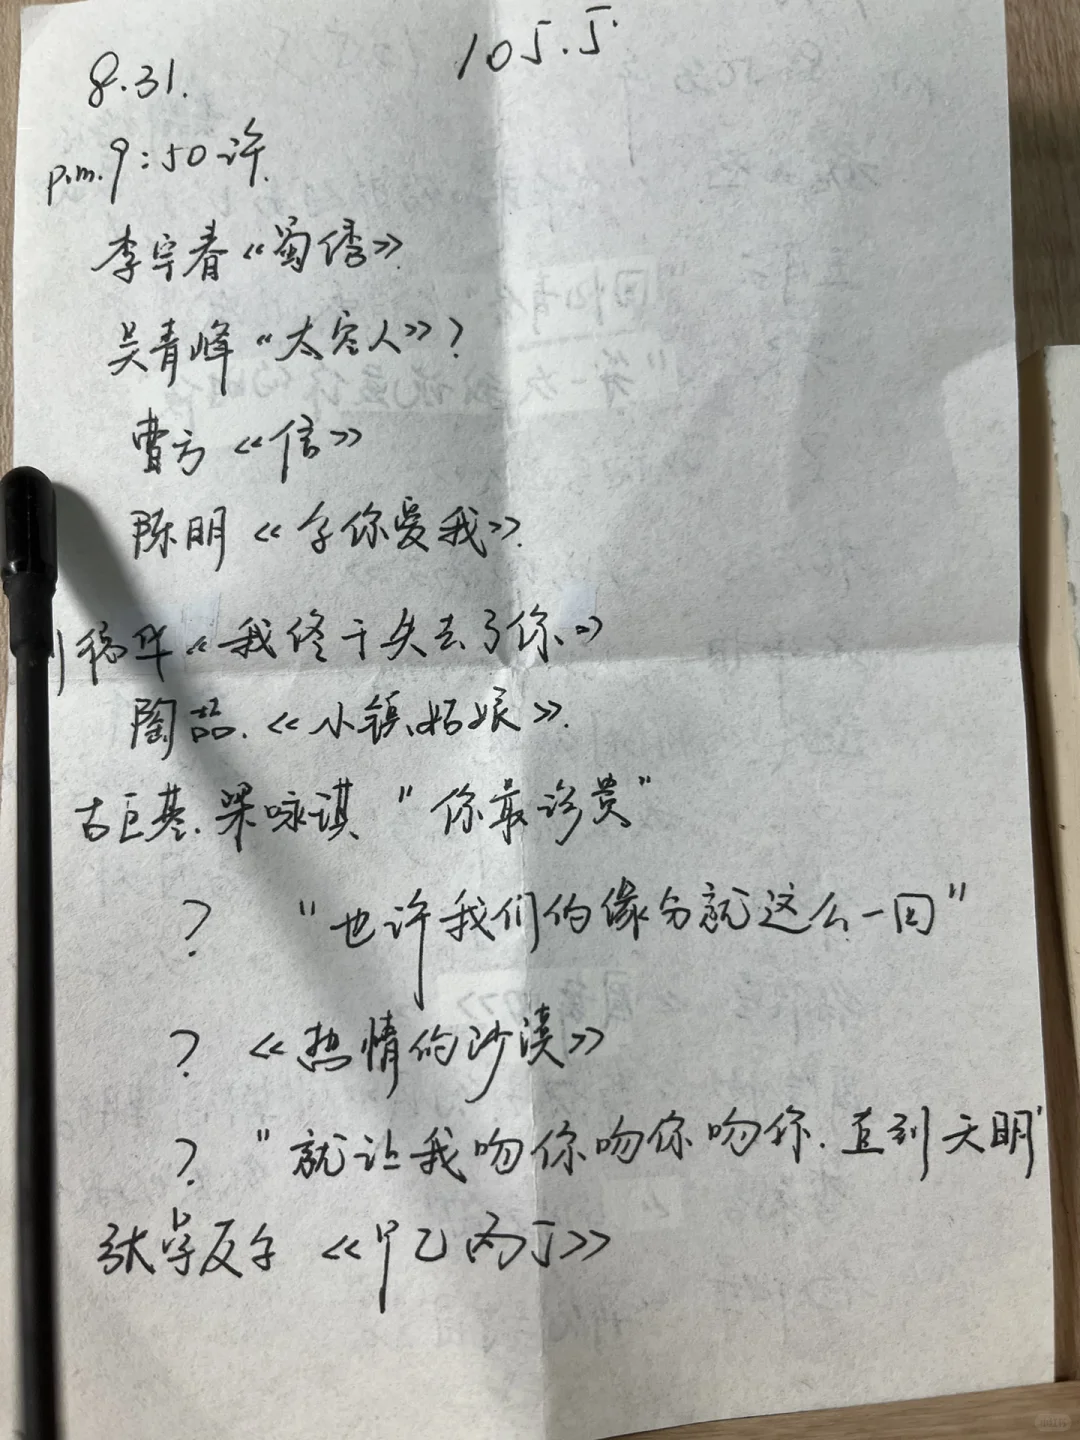 105.5
8.31.
p.m.9:50许.
李宇春《蜀绣》
吴青峰“太空人》?
曹方《信》
陈明《等你爱我》.
德华《我终于失去了你》
陶喆.《小镇姑娘》.
古巨基.梁咏琪“你最珍贵”
? “也许我们的缘分就这么一回”
? 《热情的沙漠》
? “就让我吻你吻你吻你.直到天明”
张学友 《甲乙丙丁》